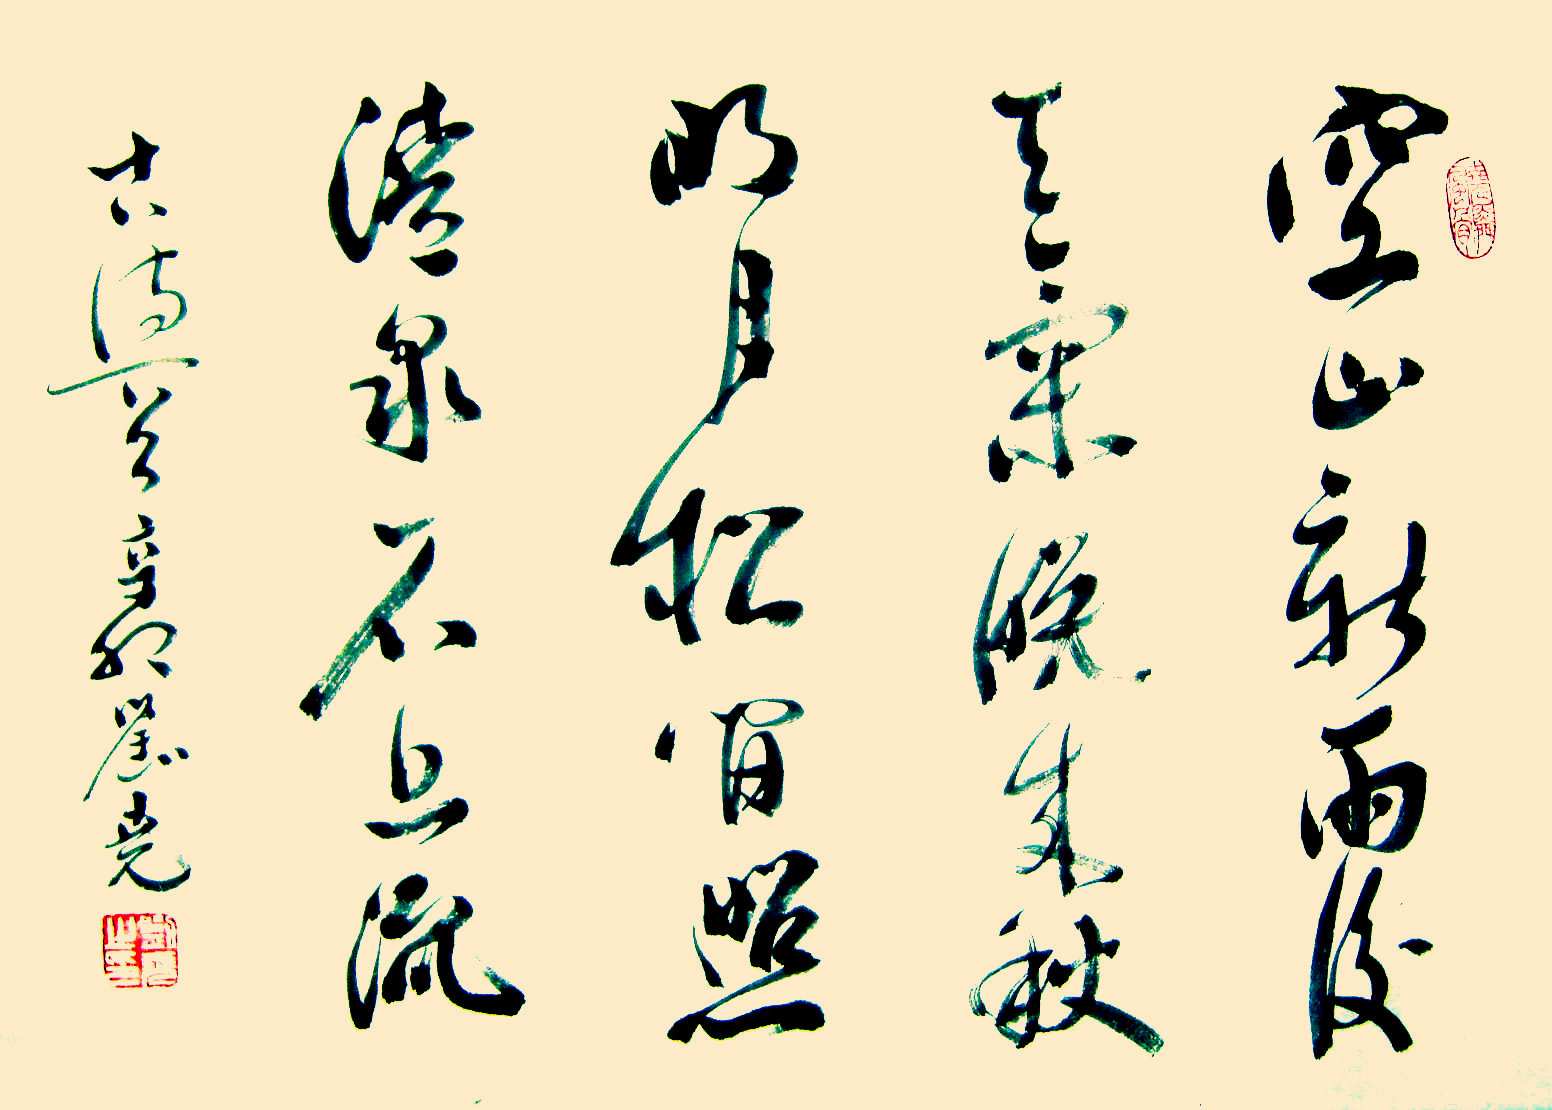 空山新雨後
天氣晚來秋
明月松間照
清泉石上流
古詩一首 辛卯 劉堯